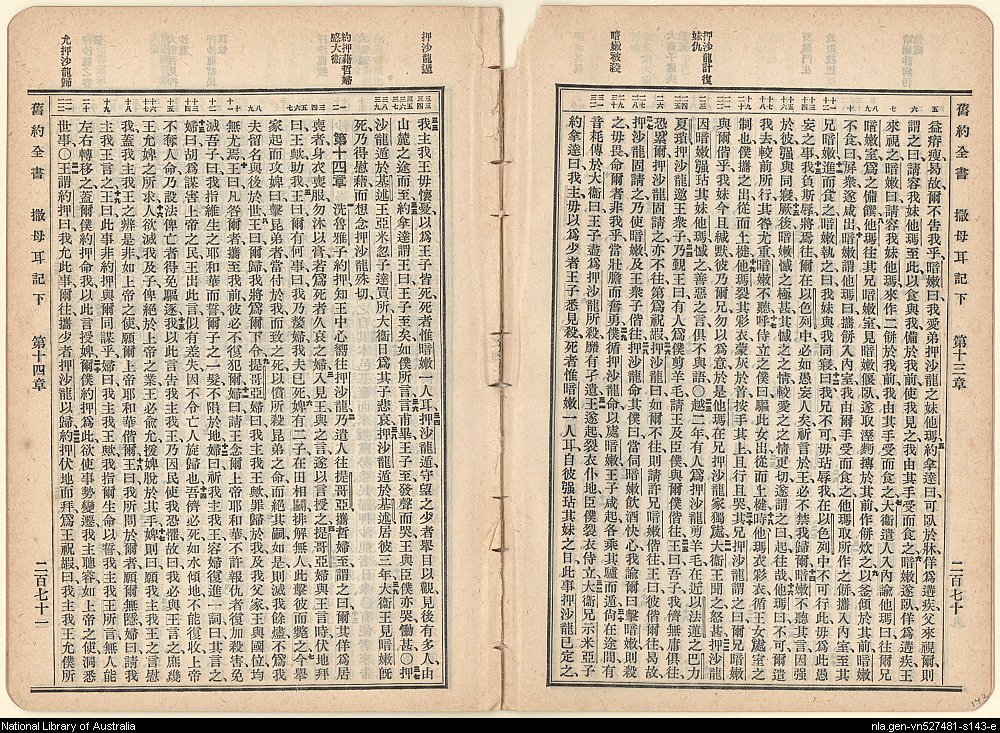 舊約全書 撒母耳記下 第十三章 二百七十
益瘠瘦曷故爾不吿我乎暗嫩曰我愛弟押沙龍之妹他瑪約拿達曰可臥於牀佯爲遘疾父來視爾則
謂之曰請容我妹他瑪至此以食與我備於我前使我見之我由其手受而食之暗嫩遂臥佯爲遘疾王
來視之暗嫩曰請容我妹他瑪來作二餅於我前使我由其手受而食之大衛遣人入內諭他瑪曰往爾兄
暗嫩室爲之備饌他瑪往其兄暗嫩室見暗嫩偃臥遂取溼麪摶於其前作餅炊之以釜傾於其前暗嫩
不食曰屏衆遂咸出暗嫩謂他瑪曰攜餅入內室我由爾手受而食之他瑪取所作之餅攜入內室至其
兄暗嫩前進而食之暗嫩執之曰我妹與我同寢曰我兄不可毋玷辱我在以色列中不可行此毋爲此愚
妄之事我負斯辱將焉往爾在以色列中必如愚妄人矣祈言於王必不禁我歸爾暗嫩不聽其言因強
於彼強與同寢厥後暗嫩憾之極甚其憾之之情較愛之之情更切遂謂之曰起往哉他瑪曰不可爾遣
我去較前所行其咎尤重暗嫩不聽呼侍立之僕曰驅此女出從而上楗時他瑪衣彩衣循王女處室之
制也僕攜之出從而上楗他瑪裂其彩衣蒙灰於首按手其上且行且哭其兄押沙龍謂之曰爾兄暗嫩
與爾偕乎我妹今且緘默彼乃爾兄勿以爲意於是他瑪在兄押沙龍家獨處大衛王聞之怒甚押沙龍
因暗嫩強玷其妹他瑪憾之善惡之言俱不與語〇越二年有人爲押沙龍剪羊毛在近以法蓮之巴力
夏瑣押沙龍邀王衆子乃覲王曰有人爲僕剪羊毛請王及臣僕與爾僕偕往王曰吾子我儕無庸俱往
恐累爾押沙龍固請之亦不往第爲祝嘏押沙龍曰如爾不往則請許兄暗嫩偕往王曰彼偕爾往曷故
押沙龍固請之乃使暗嫩及王衆子偕往押沙龍命其僕曰當伺暗嫩飲酒快心我諭爾曰擊暗嫩則殺
之毋畏命爾者非我乎當壯膽而奮勇僕循押沙龍命以處暗嫩王子咸起各乘其騾而遁尙在途間有
音耗傳於大衛曰王子盡爲押沙龍所殺靡有孑遺王遂起裂衣仆地臣僕裂衣侍立大衛兄示米亞子
約拿達曰我主毋以爲少者王子悉見殺死者惟暗嫩一人耳自彼強玷其妹之日此事押沙龍已定之
押沙龍計復妹仇
暗嫩被殺
我主我王毋懷憂以爲王子皆死死者惟暗嫩一人耳押沙龍遁守望之少者舉目以觀見後有多人由
山麓之途而至約拿達謂王曰王子至矣如僕所言言甫畢王子至發聲而哭王與臣僕亦哭慟甚〇押
沙龍遁於基述王亞米忽子達買所大衛日爲其子悲哀押沙龍遁於基述居彼三年大衛王見暗嫩旣
死乃得慰藉而想念押沙龍殊切
第十四章 洗魯雅子約押知王中心嚮往押沙龍乃遣人往提哥亞攜哲婦至謂之曰爾其佯爲居
喪者身衣喪服勿沐以膏若爲死者久哀之婦入見王與之言遂以言授之提哥亞婦與王言時伏地拜
曰王歟助我王曰爾有何事曰我乃嫠婦我夫已死婢有二子在田相鬭排解無人此擊彼而斃之今舉
家起而攻婢曰擊昆弟者當付於我而致之死以償所殺昆弟之命而絕其嗣如是則滅我餘燼不爲我
夫留名與後於世王曰爾歸我將爲爾下令提哥亞婦曰我主我王歟罪歸於我及我父家王與國位均
無尤焉王曰凡咎爾者攜至我前彼必不復犯爾婦曰請王念爾上帝耶和華不許報仇者復加殺害免
滅吾子曰我指維生之耶和華而誓爾子之一髮不隕於地婦曰祈我主我王容婦復進一詞曰其言之
婦曰胡爲謀害上帝之民王出此言似有差失因不令亡人旋歸也吾儕必死如水傾地不能復收上帝
不奪人命乃設法俾亡者得免驅逐我以此言吿我主我王乃因民使我恐懼故曰我必與王言之庶幾
王允婢之所求人欲滅我及子俾絕於上帝之業王必兪允援婢脫於其手婢則曰願我主我王之言慰
我蓋我主我王之辨是非如上帝之使願爾上帝耶和華偕爾王曰我所問於爾者願爾無隱婦曰請我
主我王言之王曰此事非約押與爾同謀乎婦曰我主我王歟我指爾生命以誓我主我王所言無人能
左右轉移之蓋爾僕約押命我以此言授婢爾僕約押爲此欲使事勢變遷我主聰容如上帝之使洞悉
世事〇王謂約押曰我允此事爾往攜少者押沙龍以歸約押伏地而拜爲王祝嘏曰我主我王允僕所
押沙龍遁
約押藉哲婦感大衛
允押沙龍歸
舊約全書 撒母耳記下 第十四章 二百七十一
National Library of Australia
nla.gen-vn527481-s143-e